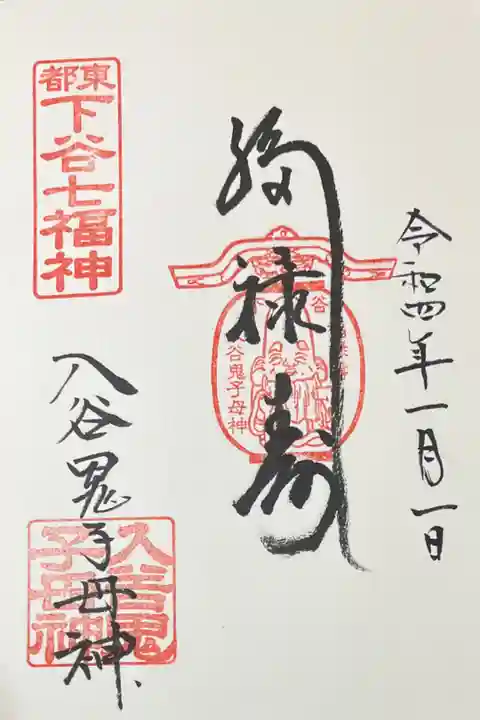 令和四年一月一日
福禄寿
谷鬼子母神
東都
下谷七福神
入谷鬼子母神
入谷鬼子母神